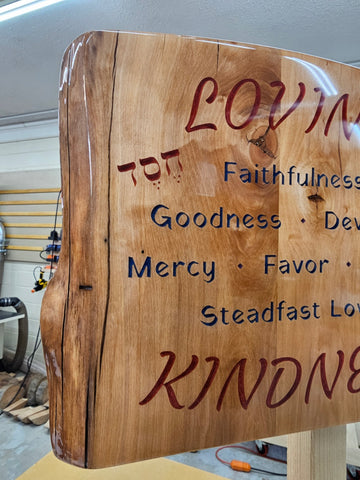 LOVIN
חֶסֶד Faithfulness
Goodness · Dev
Mercy · Favor ·
Steadfast Lov
KINDNE